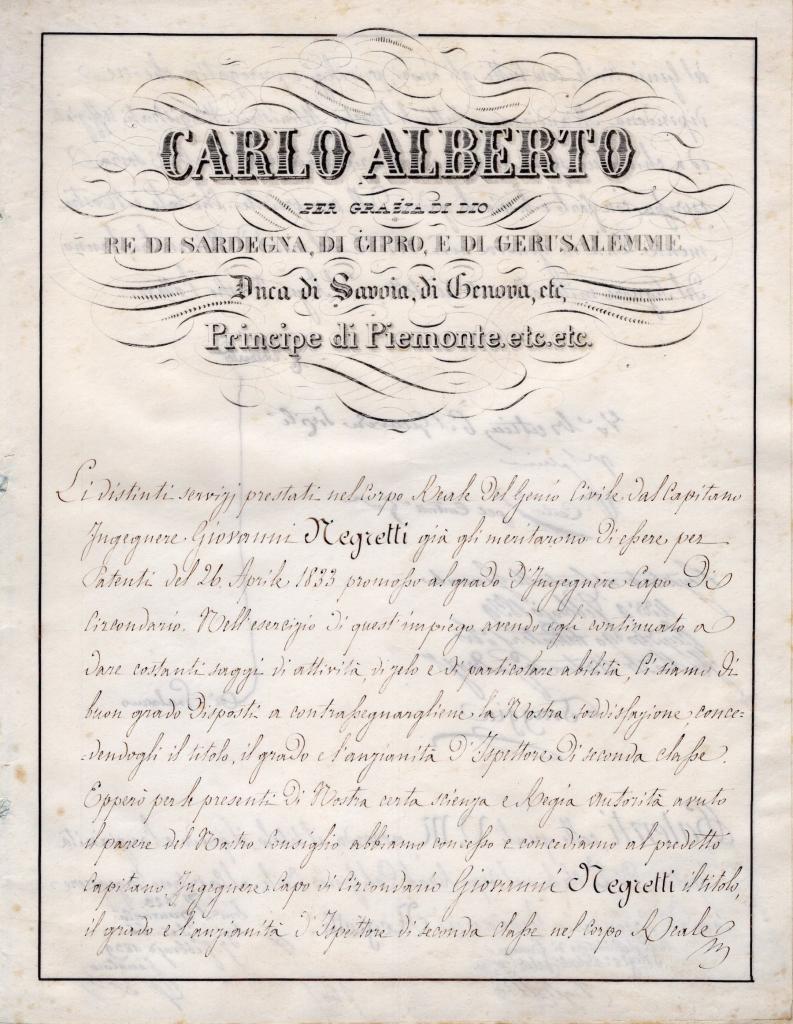 CARLO ALBERTO
PER GRAZIA DI DIO
RE DI SARDEGNA, DI CIPRO, E DI GERUSALEMME
Duca di Savoia, di Genova, etc,
Principe di Piemonte. etc. etc.
Li distinti servizj prestati nel Corpo Reale Del Genio Civile dal Capitano
Ingegnere Giovanni Negretti già gli meritarono Di essere per
Patenti del 26. Aprile 1833 promosso al grado D'Ingegnere Capo Di
Circondario. Nell'esercizio Di quest'impiego avendo egli continuato a
dare costanti saggi di attività, di zelo e di particolare abilità, Ci siamo Di
buon grado Disposti a contrassegnargliene la Nostra soddisfazione, conce-
-dendogli il titolo, il grado e l'anzianità D'Ispettore Di seconda classe.
Epperò per le presenti Di Nostra certa scienza e Regia autorità avuto
il parere del Nostro Consiglio abbiamo concesso e concediamo al predetto
Capitano Ingegnere Capo di Circondario Giovanni Negretti il titolo,
il grado e l'anzianità D'Ispettore Di seconda classe nel Corpo Reale